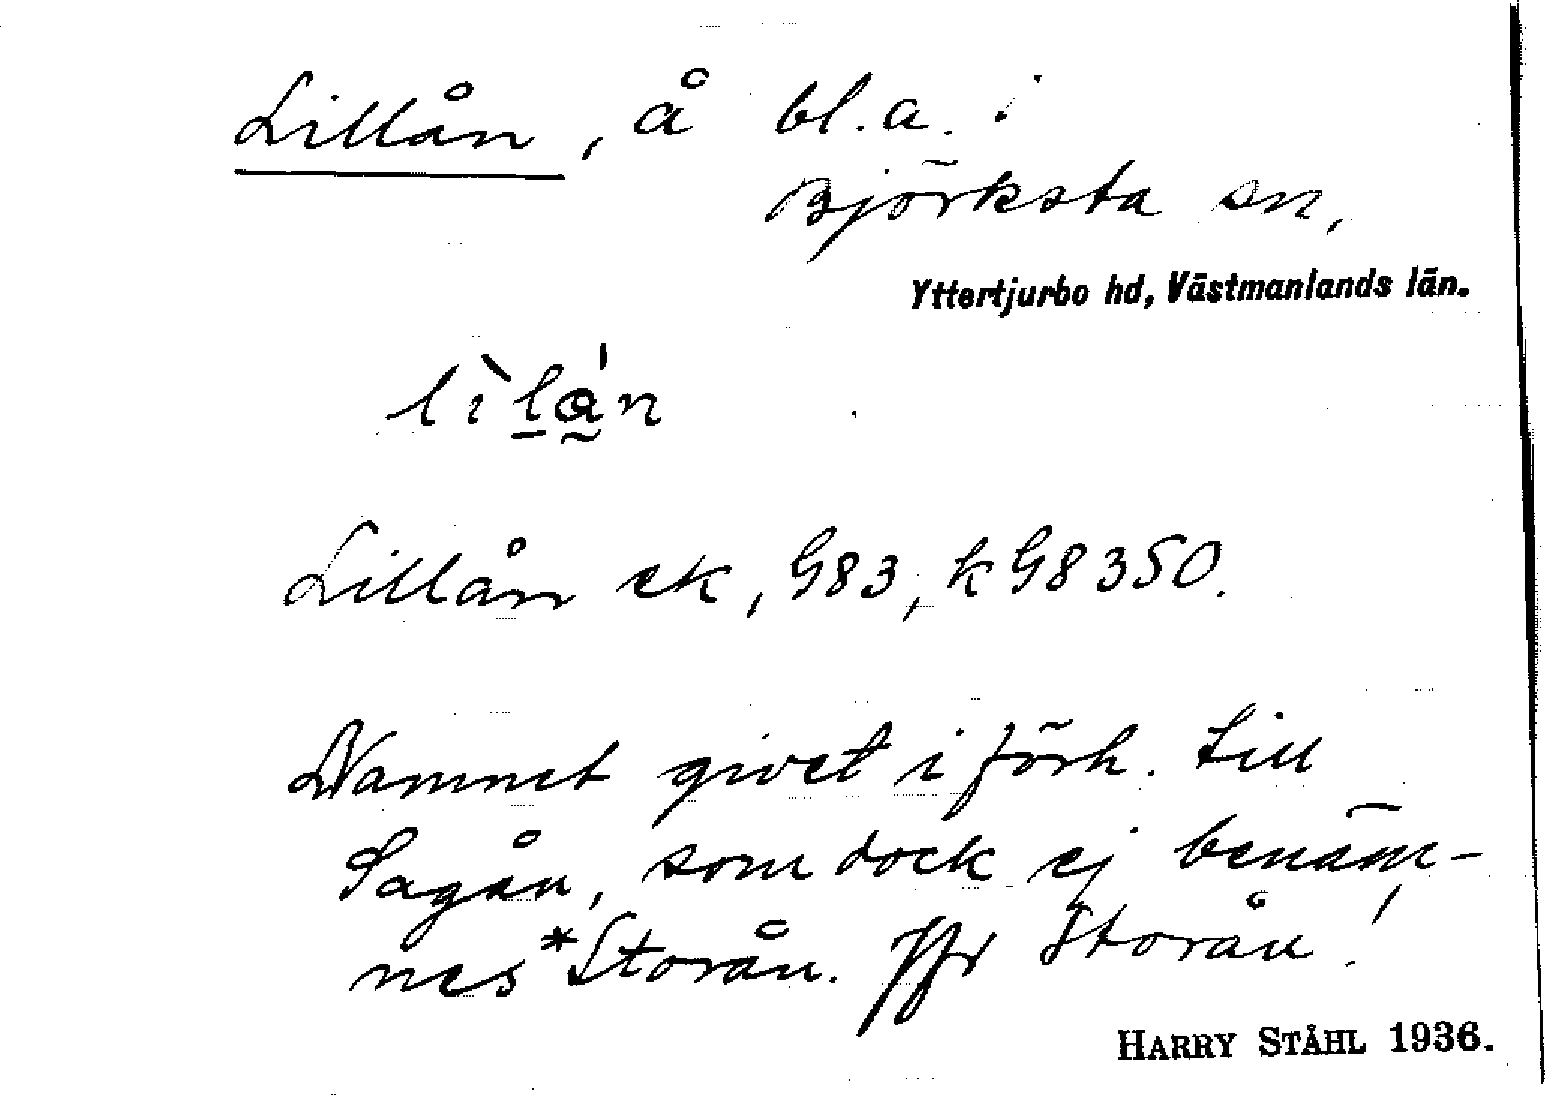 Lillån, å bl.a. i
Björksta sn,
Yttertjurbo hd, Västmanlands län.
lìlán
Lillån ek, G83, k G8350.
Namnet givet i förh. till
Sagån, som dock ej benäm-
nes *Storån. Jfr Storån!
HARRY STÅHL 1936.